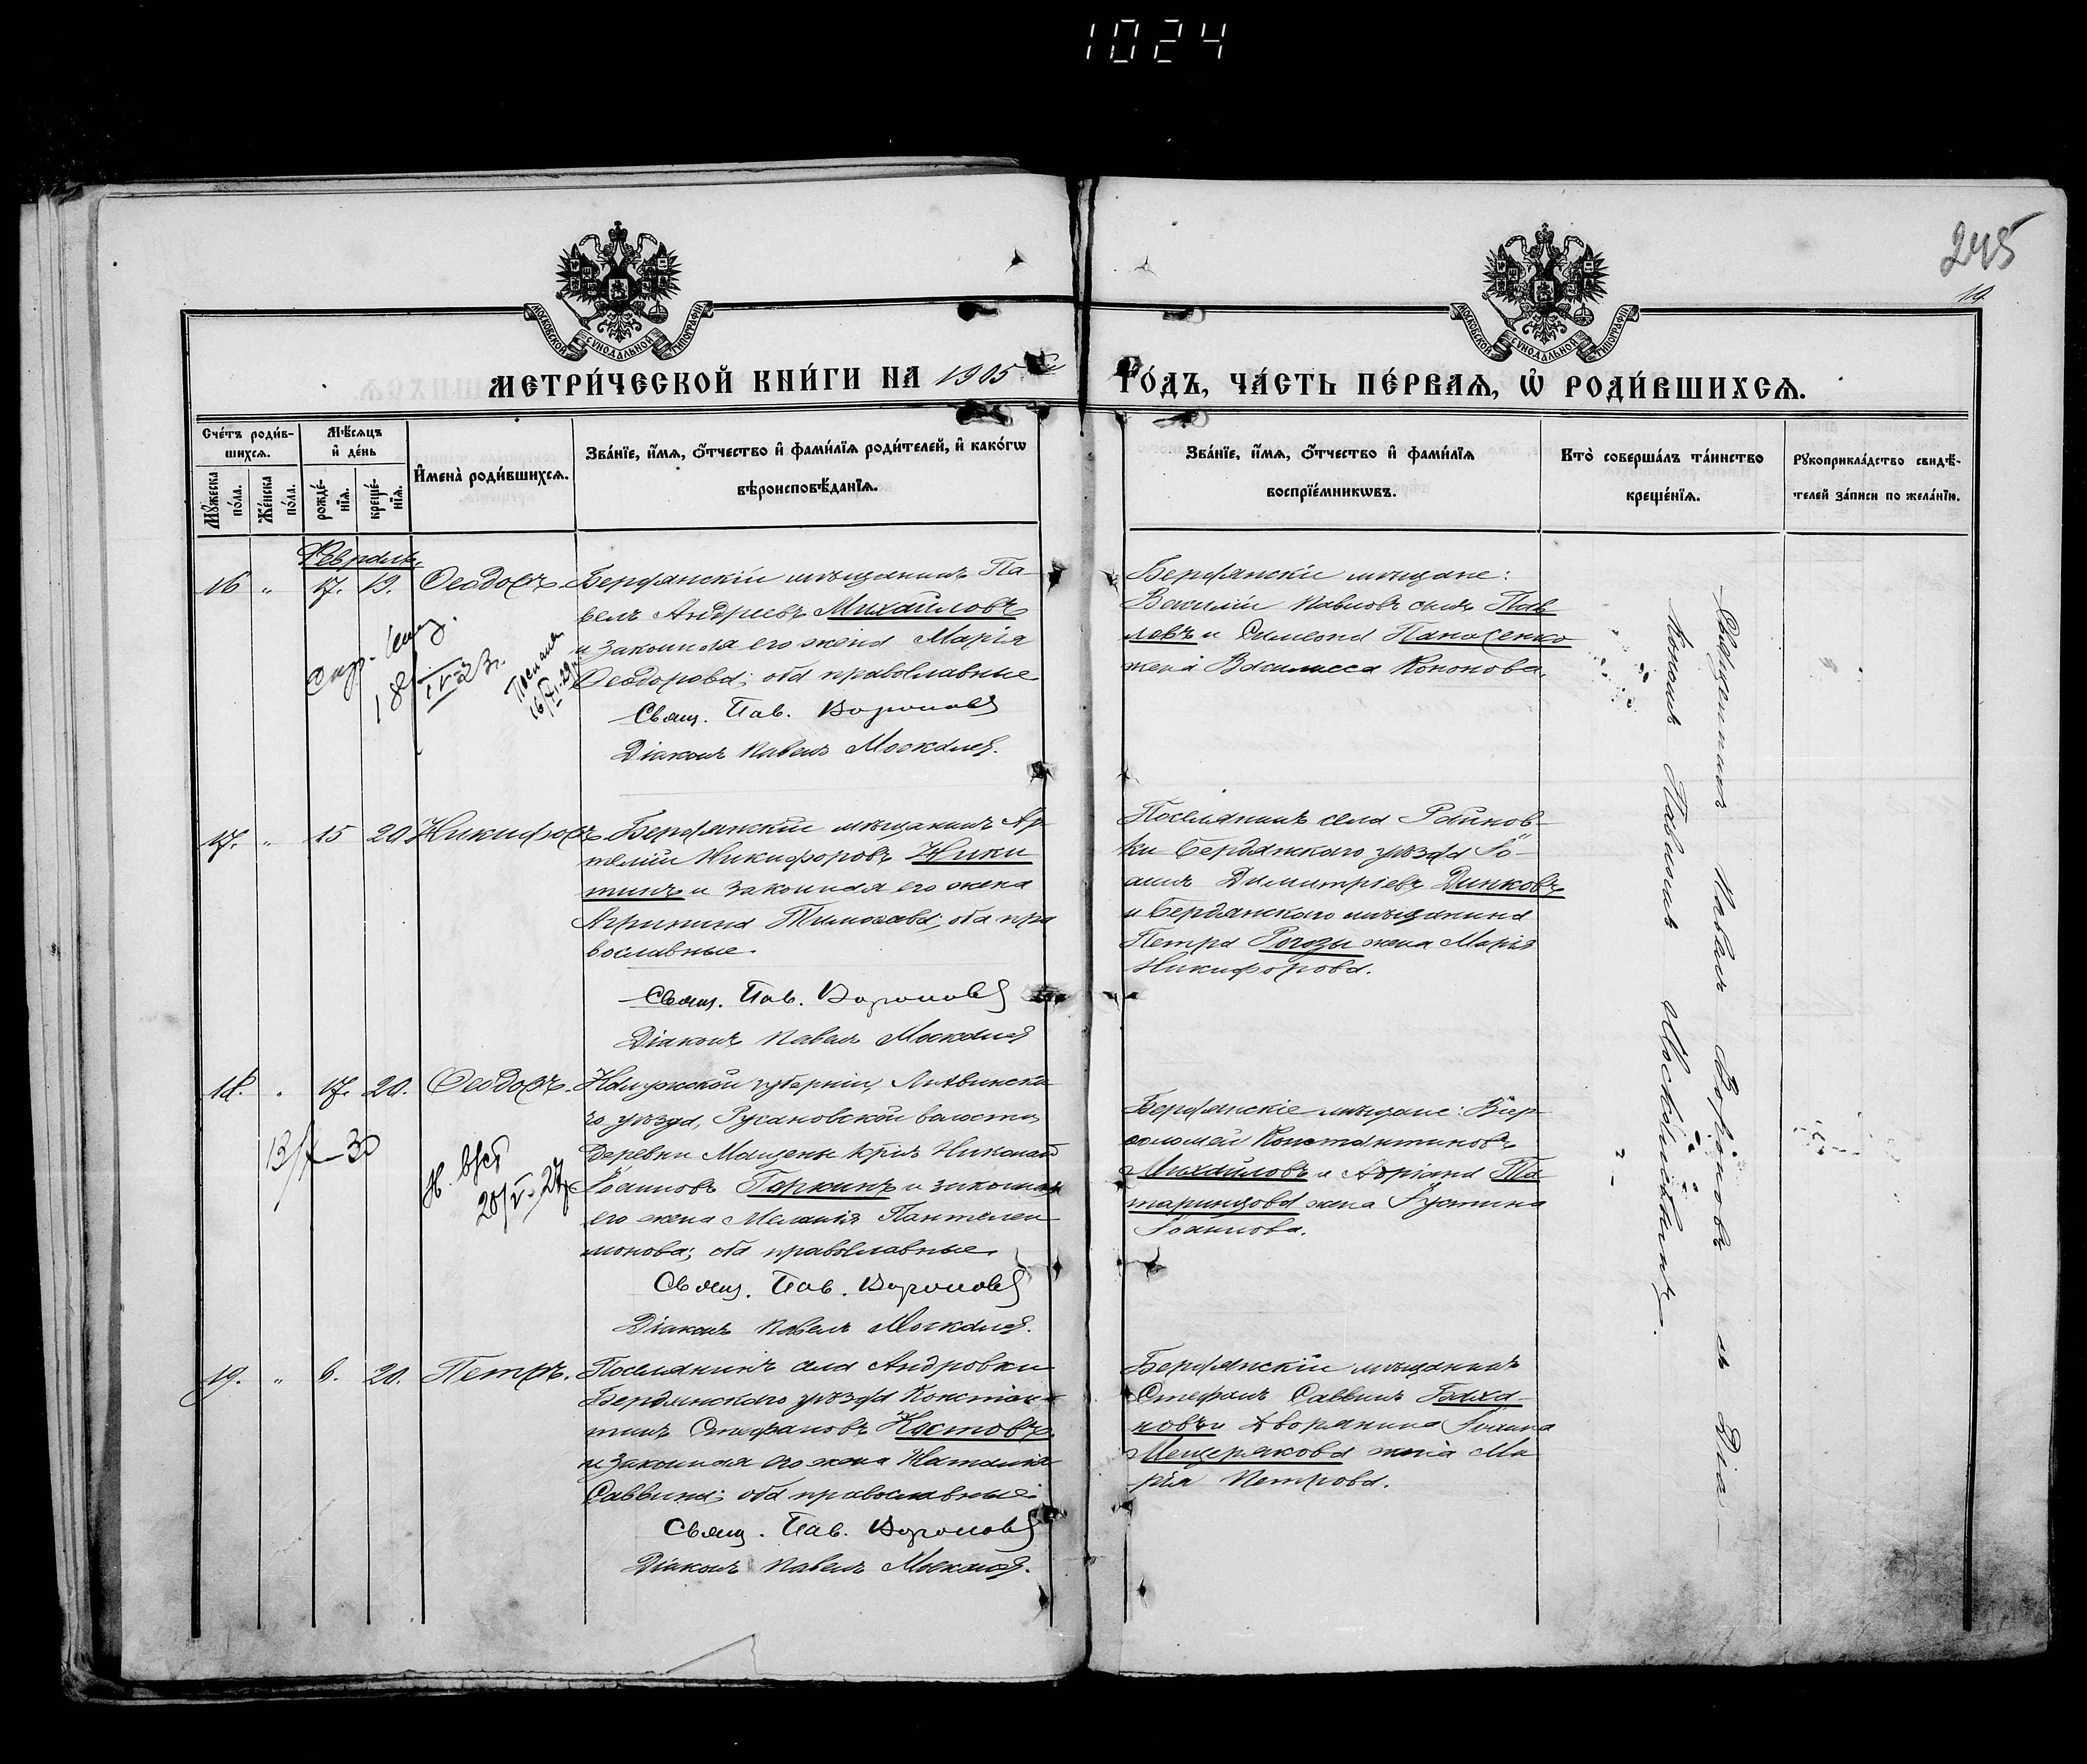 1024
245
19.
МОСКОВСКОЙ СѴНОДАЛЬНОЙ ТИПОГРАФІИ
МОСКОВСКОЙ СѴНОДАЛЬНОЙ ТИПОГРАФІИ
МЕТРИ́ЧЕСКОЙ КНИ́ГИ НА 1905
ГО́ДЪ, ЧА́СТЬ ПЕ́РВАѦ, Ѽ РОДИ́ВШИХСѦ.
Сче́тъ роди́в-
шихсѧ.
Мꙋ́жеска по́ла.
Же́нска по́ла.
Мѣ́сѧцъ
и҆ де́нь
рожде́-
нїѧ.
креще́-
нїѧ.
И҆мена̀ роди́вшихсѧ.
Зва́нїе, и҆́мѧ, ѻ҆́тчество и҆ фами́лїѧ роди́телей, и҆ како́гѡ
вѣроисповѣ́данїѧ.
Зва́нїе, и҆́мѧ, ѻ҆́тчество и҆ фами́лїѧ
воспрїе́мникѡвъ.
Кто̀ соверша́лъ та́инство
креще́нїѧ.
Рꙋкоприкла́дство свидѣ́-
телей за́писи по жела́нїю.
Февраль
16 " 17. 19. Ѳеодоръ
Бердянскій мѣщанинъ Па-
велъ Андреевъ Михайловъ
и законная его жена Марія
Ѳеодорова; оба православные
Свящ. Пав. Вороновъ
Діаконъ Павелъ
18/IV 23 г.
Бердянскіе мѣщане:
Василій Павловъ сынъ Пав-
ловъ и Симеона Панасенко
жена Василисса Кононова.
17. " 15 20 Никифоръ
Бердянскій мѣщанинъ Ар-
темій Никифоровъ Ники-
тинъ и законная его жена
Агрипина Тимоѳеева; оба пра-
вославные.
Свящ. Пав. Вороновъ
Діаконъ Павелъ
Поселянинъ села Райнов-
ки Бердянскаго уѣзда Іо-
аннъ Димитріевъ Динковъ
и Бердянскаго мѣщанина
Петра Рогозы жена Марія
Никифорова.
18. " 17. 20. Ѳеодоръ.
Калужской губерніи, Лихвинска-
го уѣзда, Русановской волости,
деревни Мащены кр-нъ Николай
Іоанновъ Гаркинъ и законная
его жена Меланія Пантелеи-
монова; оба православные.
Свящ. Пав. Вороновъ
Діаконъ Павелъ
Бердянскіе мѣщане: Вар-
ѳоломей Константиновъ
Михайловъ и Адріана Та-
таринцова жена Іустина
Іоаннова.
19. " 6. 20. Петръ.
Поселянинъ села Андровки
Бердянскаго уѣзда Констан-
тинъ Стефановъ Костовъ
и законная его жена Наталія
Саввина; оба православные.
Свящ. Пав. Вороновъ
Діаконъ Павелъ
Бердянскій мѣщанинъ
Стефанъ Саввинъ
новъ и дворянина Іоанна
Мещерякова жена Ма-
рія Петрова.
Священникъ Павелъ Вороновъ съ Діа-
кономъ Павломъ